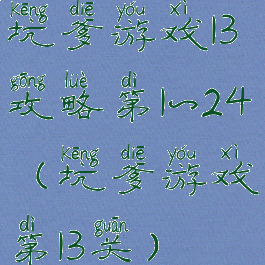 kēng diē yóu xì
坑爹游戏13
gōng lüè dì
攻略第1~24
kēng diē yóu xì
(坑爹游戏
dì guān
第13关)